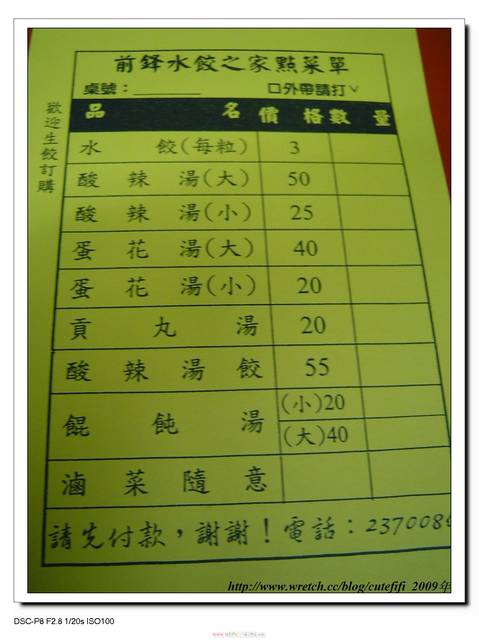 前鋒水餃之家點菜單
桌號：________ 口外帶請打∨
歡迎生餃訂購
品 名 價 格 數 量
水 餃(每粒) 3
酸 辣 湯(大) 50
酸 辣 湯(小) 25
蛋 花 湯(大) 40
蛋 花 湯(小) 20
貢 丸 湯 20
酸 辣 湯 餃 55
餛 飩 湯 (小)20
(大)40
滷 菜 隨 意
請先付款，謝謝！電話：237008
http://www.wretch.cc/blog/cutefifi 2009年
DSC-P8 F2.8 1/20s ISO100